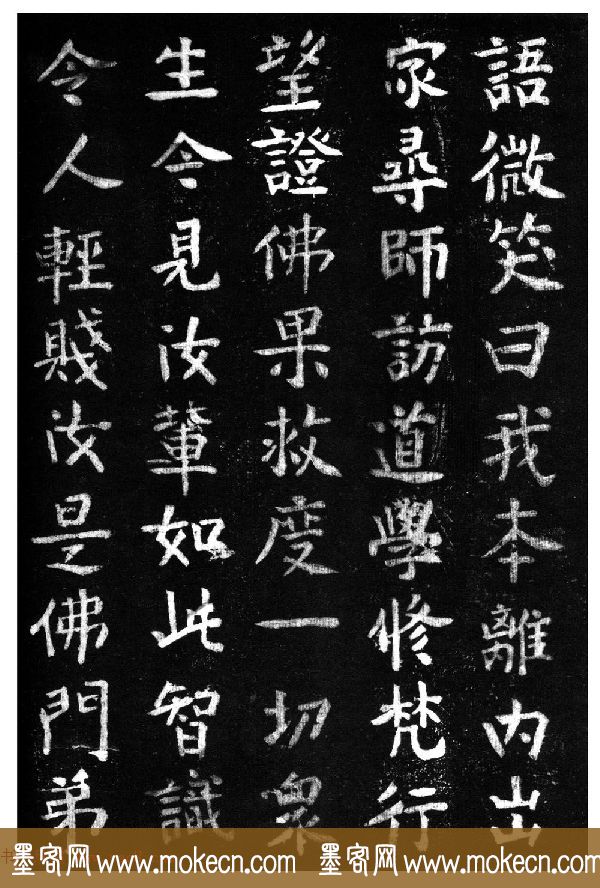 語微笑曰我本離内出
家尋師訪道學修梵行
望證佛果救度一切眾
生今見汝輩如此智識
令人輕賤汝是佛門弟
墨客网 www.mokecn.com 墨客网 www.mokecn.com